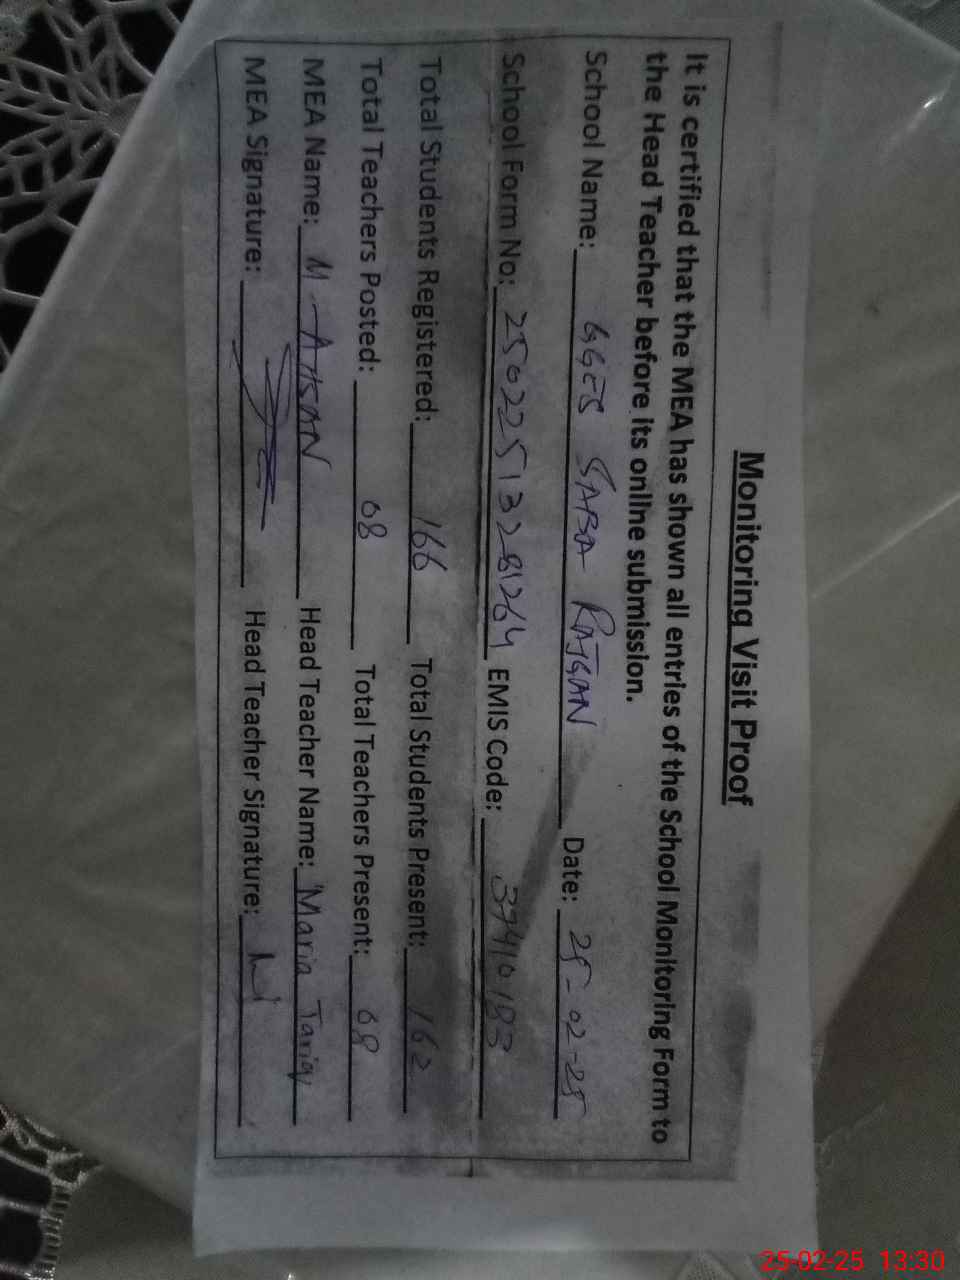 Monitoring Visit Proof
It is certified that the MEA has shown all entries of the School Monitoring Form to
the Head Teacher before its online submission.
School Name: GGES SABA RAJGAN Date: 25-02-25
School Form No: 25022513281264 EMIS Code: 37410193
Total Students Registered: 166 Total Students Present: 162
Total Teachers Posted: 08 Total Teachers Present: 08
MEA Name: M-AHSAN Head Teacher Name: Maria Tariq
MEA Signature: Head Teacher Signature:
25-02-25 13:30